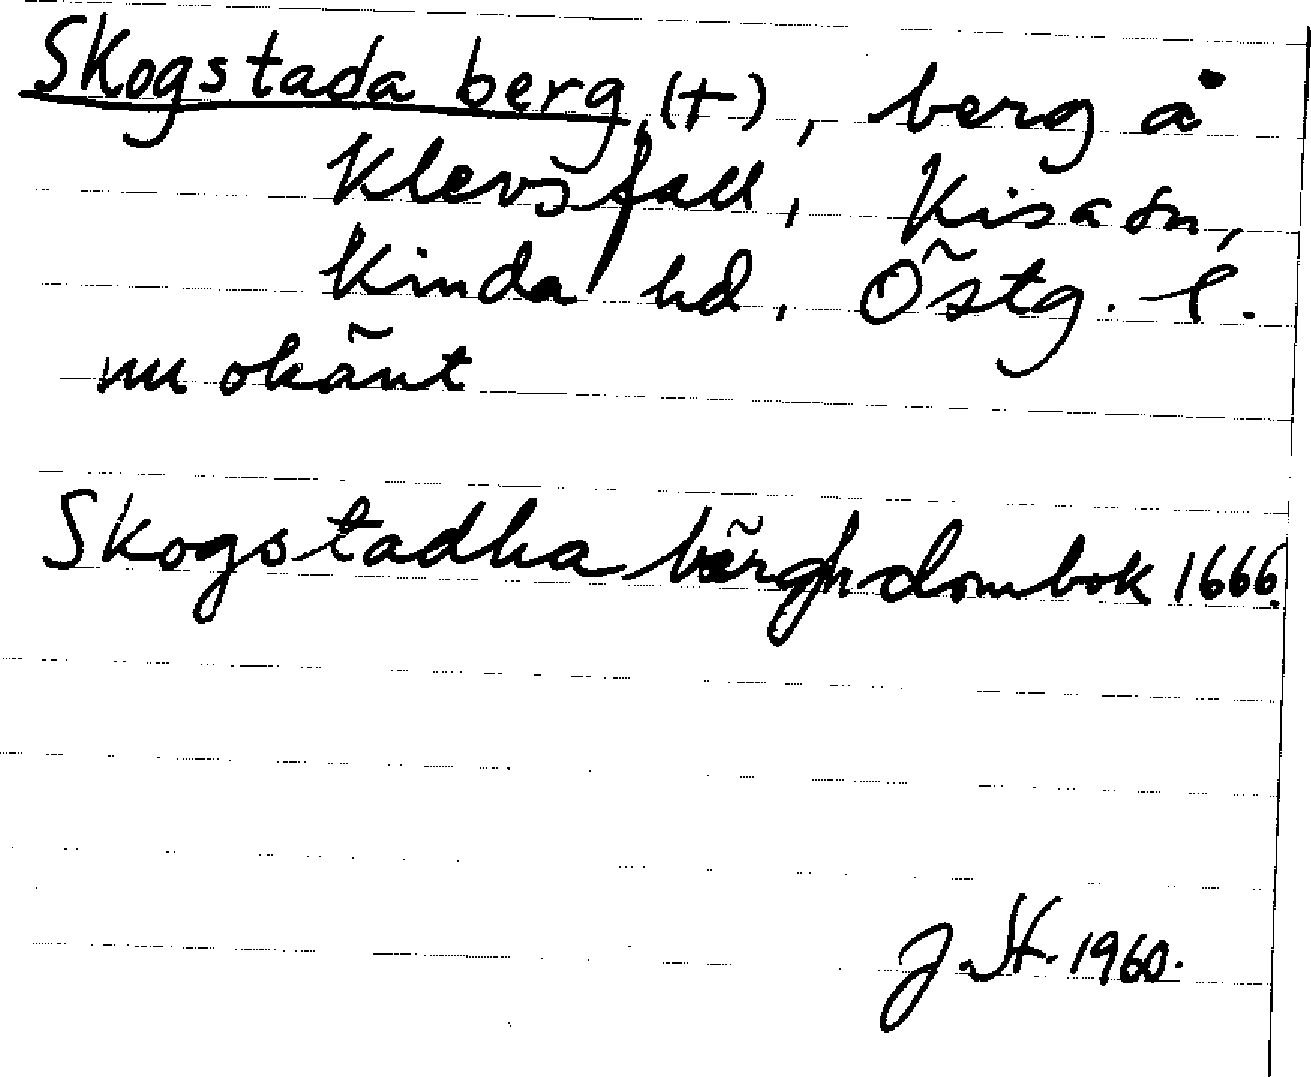 Skogstada berg (+), berg å
Klevsfall, Kisa sn,
Kinda hd, Östg. l.
nu okänt
Skogstadha bärgh dombok 1666.
J. St. 1960.